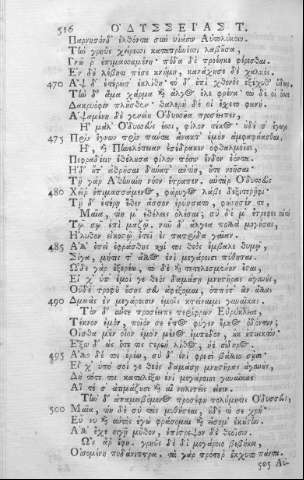 516 ΟΔΥΣΣΕΙΑΣ Τ.
Παρνησόνδ' ἐλθόντα σὺν υἱάσιν Αὐτολύκοιο.
Τὴν γρηῢς χείρεσσι καταπρηνέσσι λαβοῦσα,
Γνῶ ῥ' ἐπιμασσαμένη· πόδα δὲ προέηκε φέρεσθαι.
Ἐν δὲ λέβητι πέσε κνήμη, κανάχησε δὲ χαλκός.
470 Ἂψ δ' ἑτέρωσ' ἐκλίθη· τὸ δ' ἐπὶ χθονὸς ἐξέχυθ' ὕδωρ.
Τὴν δ' ἅμα χάρμα καὶ ἄλγος ἕλε φρένα· τὼ δέ οἱ ὄσσε
Δακρυόφιν πλῆσθεν· θαλερὴ δέ οἱ ἔσχετο φωνή.
Ἁψαμένη δὲ γενείου Ὀδυσσῆα προσέειπεν,
Ἦ μάλ' Ὀδυσσεύς ἐσσι, φίλον τέκος· οὐδέ σ' ἔγωγε
475 Πρὶν ἔγνων πρὶν πάντα ἄνακτ' ἐμὸν ἀμφαφάασθαι.
Ἦ, καὶ Πηνελόπειαν ἐσέδρακεν ὀφθαλμοῖσι,
Πεφραδέειν ἐθέλουσα φίλον πόσιν ἔνδον ἐόντα.
Ἡ δ' οὔτ' ἀθρῆσαι δύνατ' ἀντίη, οὔτε νοῆσαι·
Τῇ γὰρ Ἀθηναίη νόον ἔτραπεν. αὐτὰρ Ὀδυσσεὺς
480 Χεῖρ' ἐπιμασσάμενος, φάρυγος λάβε δεξιτερῆφι·
Τῇ δ' ἑτέρῃ ἕθεν ἆσσον ἐρύσσατο, φώνησέν τε,
Μαῖα, τίη μ' ἐθέλεις ὀλέσαι; σὺ δέ μ' ἔτρεφες αὐτὴ
Τῷ σῷ ἐπὶ μαζῷ. νῦν δ' ἄλγεα πολλὰ μογήσας,
Ἤλυθον εἰκοστῷ ἔτεϊ ἐς πατρίδα γαῖαν.
485 Ἀλλ' ἐπεὶ ἐφράσθης καί τοι θεὸς ἔμβαλε θυμῷ,
Σίγα, μήτις τ' ἄλλος ἐνὶ μεγάροισι πύθηται.
Ὧδε γὰρ ἐξερέω, τὸ δὲ καὶ τετελεσμένον ἔσται,
Εἴ χ' ὑπ' ἐμοί γε θεὸς δαμάσῃ μνηστῆρας ἀγαυοὺς,
Οὐδὲ τροφοῦ οὔσης σεῦ ἀφέξομαι, ὁππότ' ἂν ἄλλας
490 Δμωὰς ἐν μεγάροισιν ἐμοῖς κτείνωμι γυναῖκας.
Τὸν δ' αὖτε προσέειπε περίφρων Εὐρύκλεια,
Τέκνον ἐμὸν, ποῖόν σε ἔπος φύγεν ἕρκος ὀδόντων;
Οἶσθα μὲν οἷον ἐμὸν μένος ἔμπεδον, οὐκ ἐπιεικτόν.
Ἕξω δ' ὡς ὅτε τις στερεὴ λίθος, ἠὲ σίδηρος.
495 Ἄλλο δέ τοι ἐρέω, σὺ δ' ἐνὶ φρεσὶ βάλλεο σῇσι·
Εἴ χ' ὑπὸ σοί γε θεὸς δαμάσῃ μνηστῆρας ἀγαυοὺς,
Δὴ τότε τοι καταλέξω ἐνὶ μεγάροισι γυναῖκας
Αἵ τέ σ' ἀτιμάζουσι καὶ αἳ νηλιτεῖς εἰσι.
Τὴν δ' ἀπαμειβόμενος προσέφη πολύμητις Ὀδυσσεὺς,
500 Μαῖα, τίη δὲ σὺ τὰς μυθήσεαι, οὐδέ τί σε χρή·
Εὖ νυ καὶ αὐτὸς ἐγὼ φράσομαι καὶ εἴσομ' ἑκάστην.
Ἀλλ' ἔχε σιγῇ μῦθον, ἐπίτρεψον δὲ θεοῖσιν.
Ὣς ἄρ' ἔφη· γρηῢς δὲ δὶ μεγάροιο βεβήκει,
Οἰσομένη ποδάνιπτρα. τὰ γὰρ πρότερ' ἔκχυτο πάντα.
505 Αὐ-